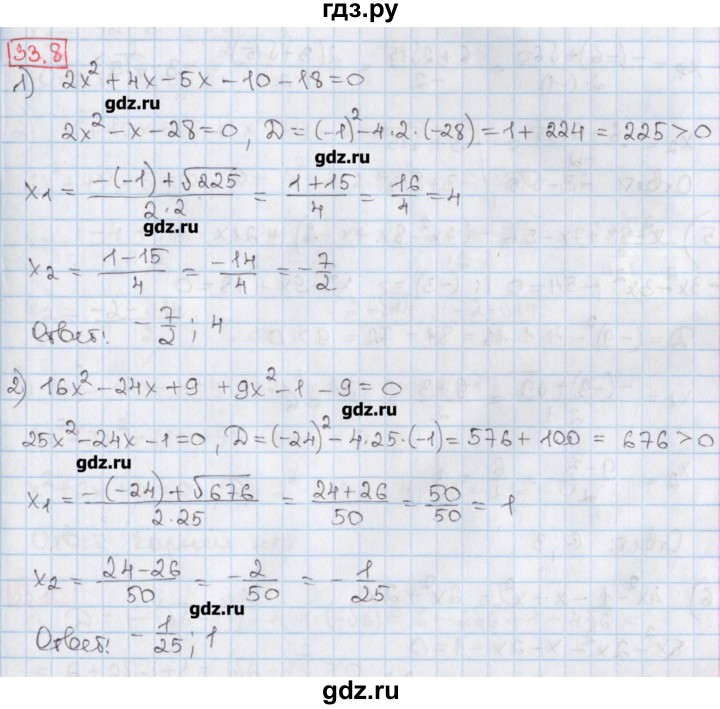 гдз.ру
33.8
1) 2x² + 4x − 5x − 10 − 18 = 0
gdz.ru
2x² − x − 28 = 0, D = (−1)² − 4·2·(−28) = 1 + 224 = 225 > 0
gdz.ru
x₁ = (−(−1) + √225)/(2·2) = (1+15)/4 = 16/4 = 4
gdz.ru
x₂ = (1−15)/4 = −14/4 = −7/2
Ответ: −7/2; 4
2) 16x² − 24x + 9 + 9x² − 1 − 9 = 0
gdz.ru
25x² − 24x − 1 = 0, D = (−24)² − 4·25·(−1) = 576 + 100 = 676 > 0
gdz.ru
x₁ = (−(−24) + √676)/(2·25) = (24+26)/50 = 50/50 = 1
gdz.ru
x₂ = (24−26)/50 = −2/50 = −1/25
gdz.ru
Ответ: −1/25; 1
gdz.ru
gdz.ru